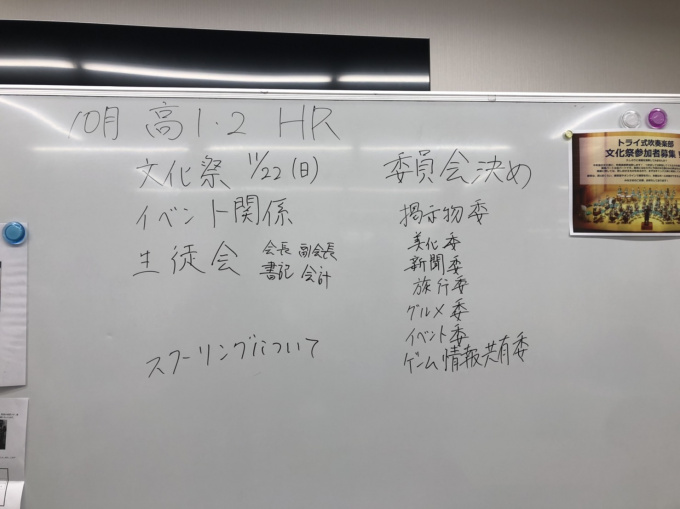 10月 高1・2 HR
文化祭 11/22(日)
イベント関係
生徒会 会長 副会長
書記 会計
スクーリングについて
委員会決め
掲示物委
美化委
新聞委
旅行委
グルメ委
イベント委
ゲーム情報共有委
トライ式吹奏楽部
文化祭参加者募集!